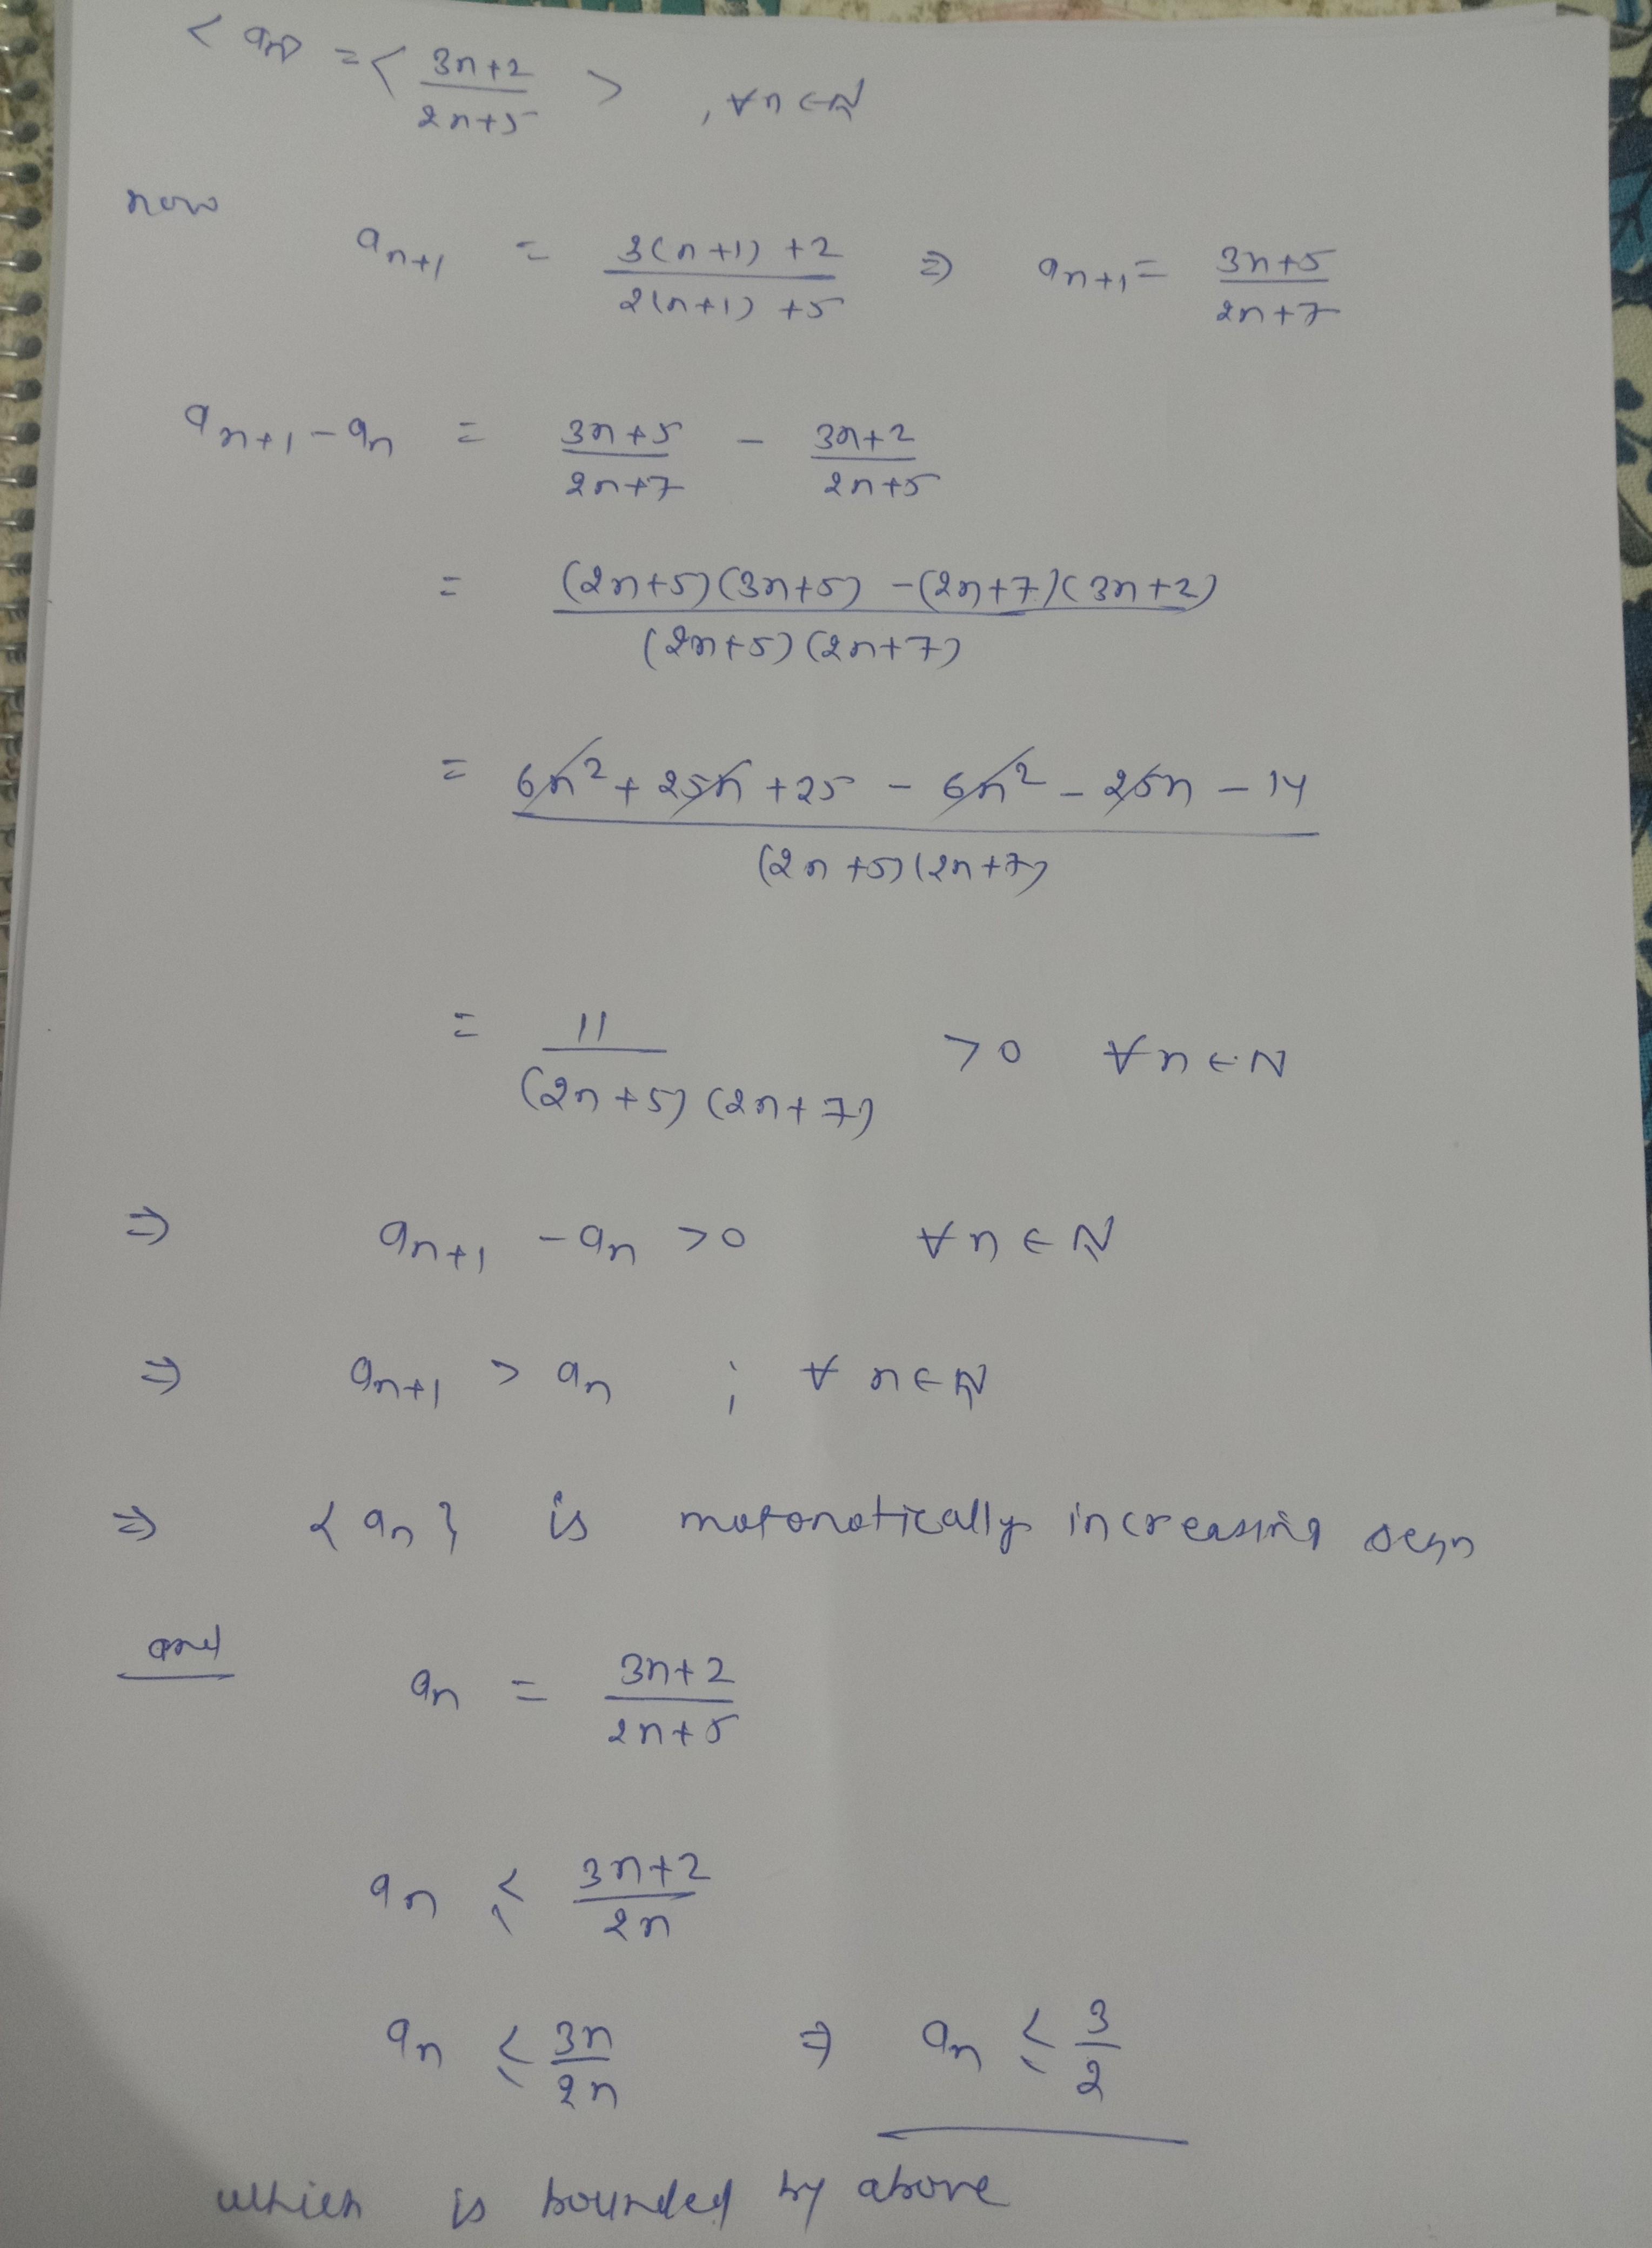 < an> = < 3n+2 / 2n+5 > , ∀n∈N
now
an+1 = 3(n+1)+2 / 2(n+1)+5 ⇒ an+1 = 3n+5 / 2n+7
an+1 - an = 3n+5 / 2n+7 - 3n+2 / 2n+5
= (2n+5)(3n+5) - (2n+7)(3n+2) / (2n+5)(2n+7)
= 6n² + 25n + 25 - 6n² - 25n - 14 / (2n+5)(2n+7)
= 11 / (2n+5)(2n+7) >0 ∀n∈N
⇒ an+1 - an >0 ∀n∈N
⇒ an+1 > an ; ∀ n∈N
⇒ {an} is motonotically increasing seqn
and an = 3n+2 / 2n+5
an ≤ 3n+2 / 2n
an ≤ 3n / 2n ⇒ an ≤ 3 / 2
which is bounded by above